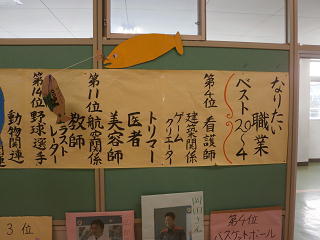 なりたい
職業
ベスト20~4
第4位 看護師
建築関係
ゲーム
クリエーター
トリマー
医者
美容師
第11位 航空関係
教師
ラスト
レーター
第14位 野球選手
動物関連
3位
第4位
バスケットボール